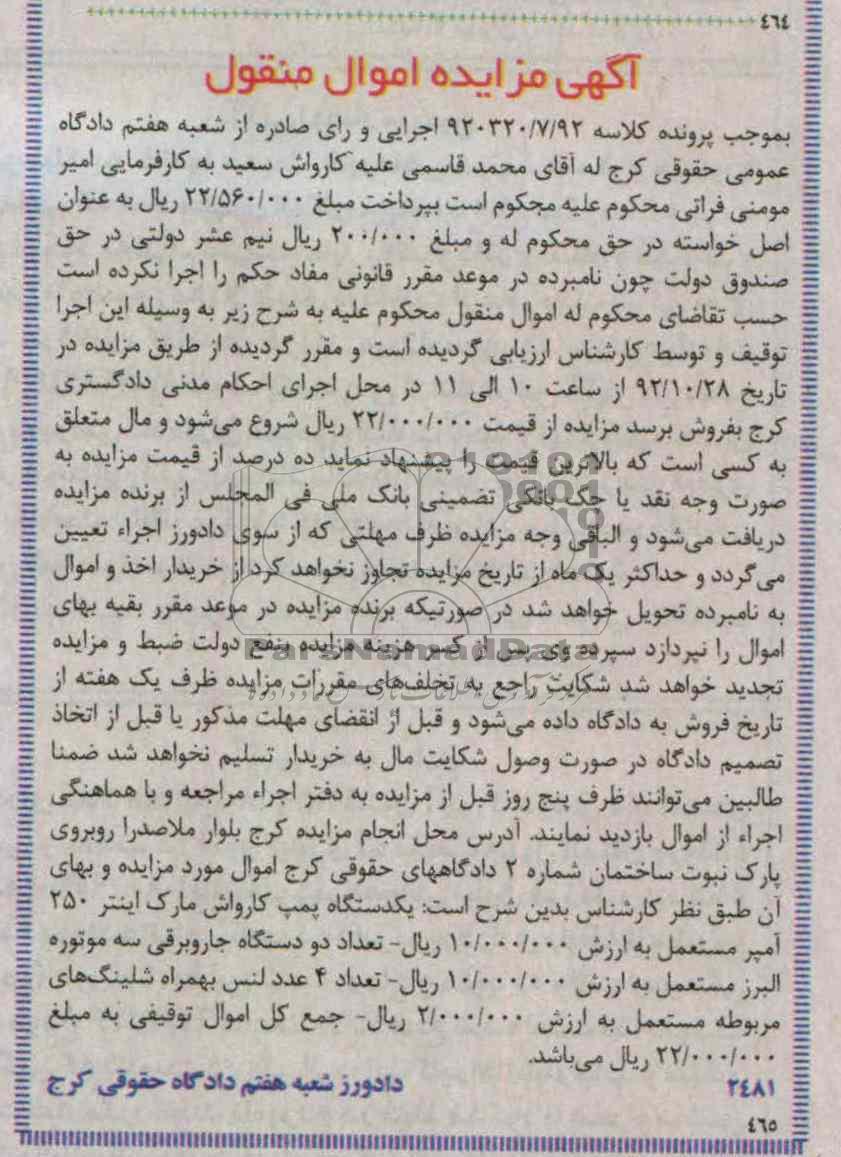 ٤٦٤
آگهی مزایده اموال منقول
بموجب پرونده کلاسه ۹۲۰۳۲۰/۷/۹۲ اجرایی و رای صادره از شعبه هفتم دادگاه
عمومی حقوقی کرج له آقای محمد قاسمی علیه کارواش سعید به کارفرمایی امیر
مومنی فراتی محکوم علیه محکوم است بپرداخت مبلغ ۲۲/۵۶۰/۰۰۰ ریال به عنوان
اصل خواسته در حق محکوم له و مبلغ ۲۰۰/۰۰۰ ریال نیم عشر دولتی در حق
صندوق دولت چون نامبرده در موعد مقرر قانونی مفاد حکم را اجرا نکرده است
حسب تقاضای محکوم له اموال منقول محکوم علیه به شرح زیر به وسیله این اجرا
توقیف و توسط کارشناس ارزیابی گردیده است و مقرر گردیده از طریق مزایده در
تاریخ ۹۲/۱۰/۲۸ از ساعت ۱۰ الی ۱۱ در محل اجرای احکام مدنی دادگستری
کرج بفروش برسد مزایده از قیمت ۲۲/۰۰۰/۰۰۰ ریال شروع می‌شود و مال متعلق
به کسی است که بالاترین قیمت را پیشنهاد نماید ده درصد از قیمت مزایده به
صورت وجه نقد یا چک بانکی تضمینی بانک ملی فی المجلس از برنده مزایده
دریافت می‌شود و الباقی وجه مزایده ظرف مهلتی که از سوی دادورز اجراء تعیین
می‌گردد و حداکثر یک ماه از تاریخ مزایده تجاوز نخواهد کرد از خریدار اخذ و اموال
به نامبرده تحویل خواهد شد در صورتیکه برنده مزایده در موعد مقرر بقیه بهای
اموال را نپردازد سپرده وی پس از کسر هزینه مزایده بنفع دولت ضبط و مزایده
تجدید خواهد شد شکایت راجع به تخلف‌های مقررات مزایده ظرف یک هفته از
تاریخ فروش به دادگاه داده می‌شود و قبل از انقضای مهلت مذکور یا قبل از اتخاذ
تصمیم دادگاه در صورت وصول شکایت مال به خریدار تسلیم نخواهد شد ضمنا
طالبین می‌توانند ظرف پنج روز قبل از مزایده به دفتر اجراء مراجعه و با هماهنگی
اجراء از اموال بازدید نمایند. آدرس محل انجام مزایده کرج بلوار ملاصدرا روبروی
پارک نبوت ساختمان شماره ۲ دادگاههای حقوقی کرج اموال مورد مزایده و بهای
آن طبق نظر کارشناس بدین شرح است: یکدستگاه پمپ کارواش مارک اینتر ۲۵۰
آمپر مستعمل به ارزش ۱۰/۰۰۰/۰۰۰ ریال- تعداد دو دستگاه جاروبرقی سه موتوره
البرز مستعمل به ارزش ۱۰/۰۰۰/۰۰۰ ریال- تعداد ۴ عدد لنس بهمراه شلینگ‌های
مربوطه مستعمل به ارزش ۲/۰۰۰/۰۰۰ ریال- جمع کل اموال توقیفی به مبلغ
۲۲/۰۰۰/۰۰۰ ریال می‌باشد.
۲٤۸۱ دادورز شعبه هفتم دادگاه حقوقی کرج
٤٦٥
ParsNamadData